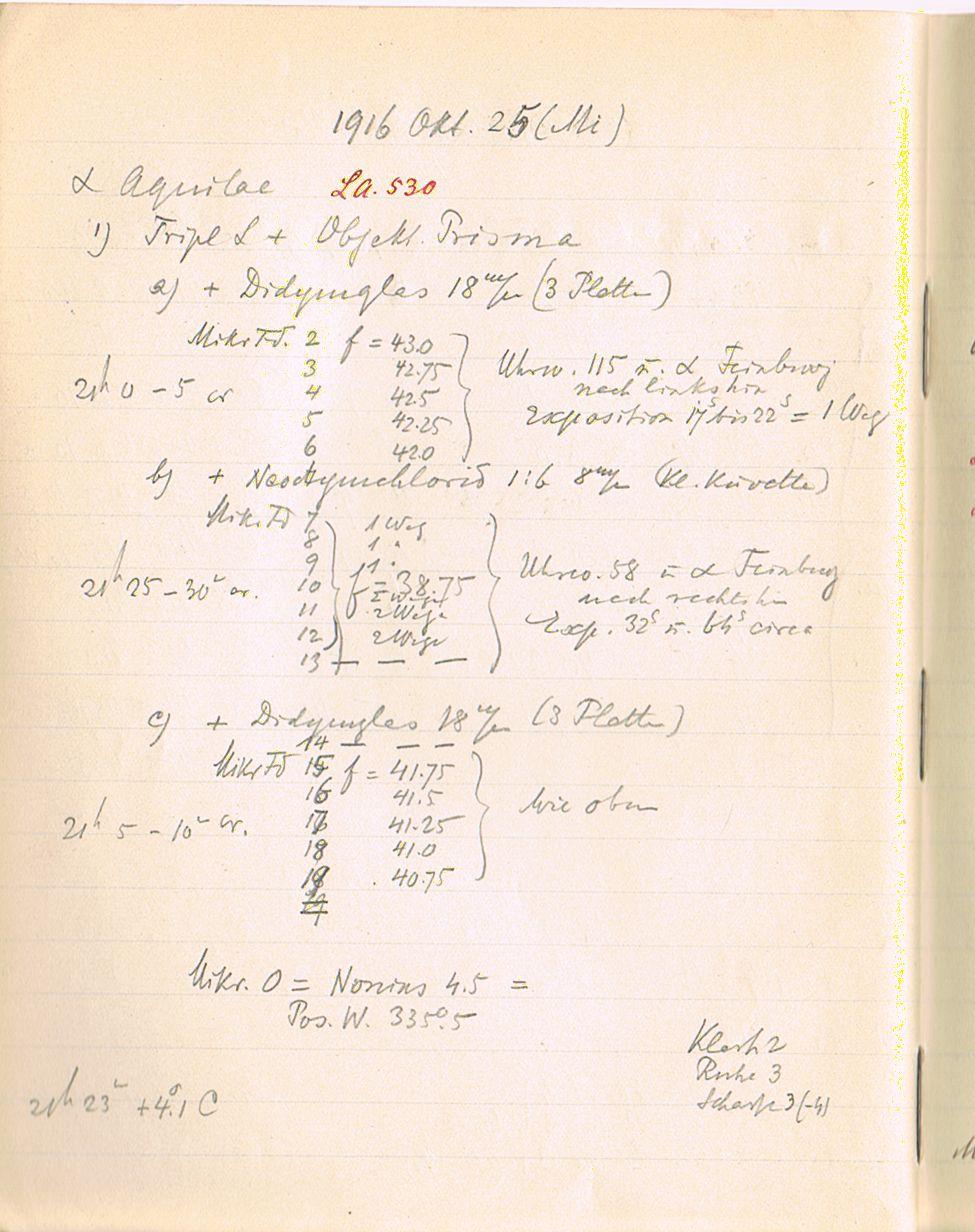 1916 Okt. 25 (Mi)
α Aquilae LA. 530
1) Tripl L + Objekt. Prisma
a) + Didymglas 18 m/m (3 Platten)
Mikr Fd. 2 f = 43.0
3 42.75 Uhrw. 115 n. α Feinbewg
21h 0 - 5 cr 4 42.5 nach links hin
5 42.25 Exposition 17s bis 22s = 1 Weg
6 42.0
b) + Neodymchlorid 1:6 8 m/m (Kl. Küvette)
Mikr Fd 7 1 Weg
8 1 "
9 1 "
10 f = 38.75 Uhrw. 58 n α Feinbewg
21h 25 - 30m cr. 11 2 Wege nach rechts hin
12 2 Wege Exp. 32s n. 64s circa
13 — — —
c) + Didymglas 18 m/m (3 Platten)
14 — — —
Mikr Fd 15 f = 41.75
16 41.5 wie oben
21h 5 - 10m cr. 17 41.25
18 41.0
19 40.75
Mikr. 0 = Nonius 4.5 =
Pos. W. 335°.5
Klarh 2
Ruhe 3
Schärfe 3 (-4)
21h 23m +4°.1 C